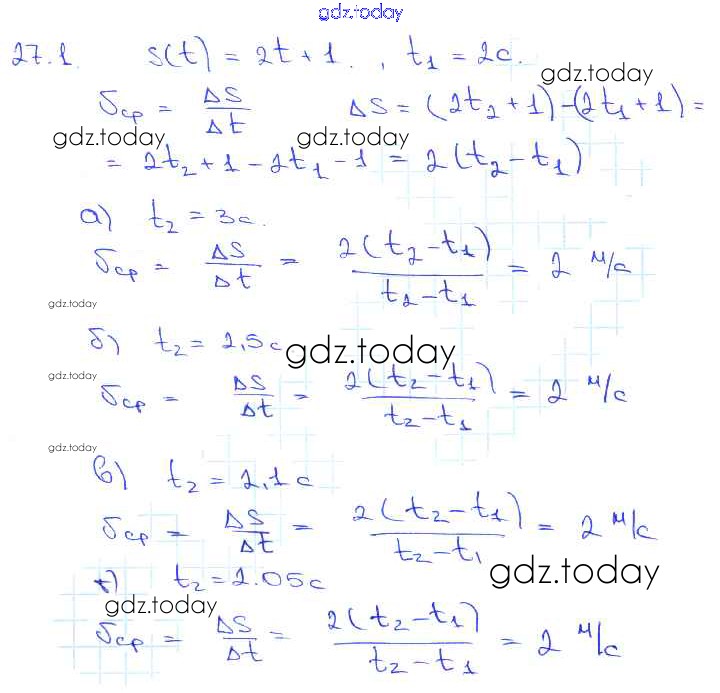 gdz.today
27.1. s(t) = 2t + 1. , t₁ = 2с.
gdz.today
υср = ΔS/Δt ΔS = (2t₂ + 1) – (2t₁ + 1) =
gdz.today gdz.today
= 2t₂ + 1 – 2t₁ – 1 = 2(t₂ – t₁)
а) t₂ = 3с.
υср = ΔS/Δt = 2(t₂ – t₁)/(t₂ – t₁) = 2 м/с
gdz.today
б) t₂ = 2,5с
gdz.today
gdz.today
υср = ΔS/Δt = 2(t₂ – t₁)/(t₂ – t₁) = 2 м/с
gdz.today
в) t₂ = 2,1с
υср = ΔS/Δt = 2(t₂ – t₁)/(t₂ – t₁) = 2 м/с
gdz.today
г) t₂ = 2.05с
gdz.today
υср = ΔS/Δt = 2(t₂ – t₁)/(t₂ – t₁) = 2 м/с